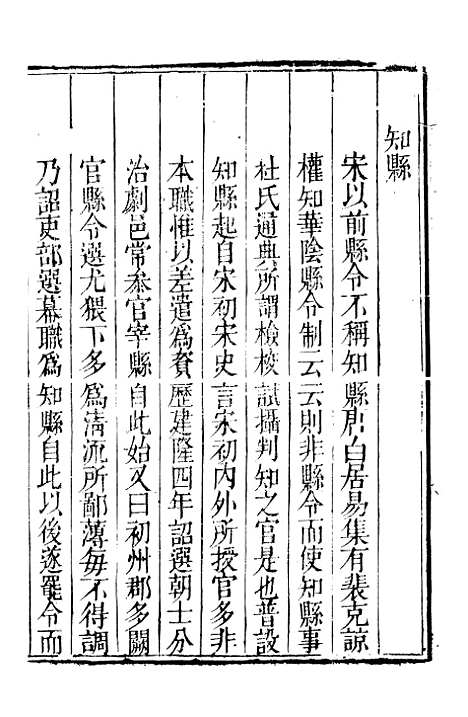 知縣
宋以前縣令不稱知縣唐白居易集有裴克諒
權知華陰縣令制云云則非縣令而使知縣事
杜氏通典所謂檢校試攝判知之官是也普設
知縣起自宋初宋史言宋初内外所授官多非
本職惟以差遣爲資歷建隆四年詔選朝士分
治劇邑常叅官宰縣自此始又曰初州郡多闕
官縣令選尤猥下多爲清流所鄙薄每不得調
乃詔吏部選幕職爲知縣自此以後遂罷令而